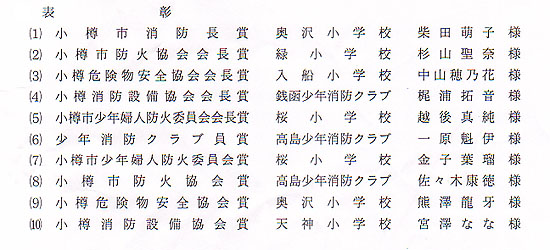 表彰
(1) 小樽市消防長賞 奥沢小学校 柴田萌子 様
(2) 小樽市防火協会会長賞 緑小学校 杉山聖奈 様
(3) 小樽危険物安全協会会長賞 入船小学校 中山穂乃花 様
(4) 小樽消防設備協会会長賞 銭函少年消防クラブ 梶浦拓音 様
(5) 小樽市少年婦人防火委員会会長賞 桜小学校 越後真純 様
(6) 少年消防クラブ員賞 高島少年消防クラブ 一原魁伊 様
(7) 小樽市少年婦人防火委員会賞 桜小学校 金子葉瑠 様
(8) 小樽市防火協会賞 高島少年消防クラブ 佐々木康徳 様
(9) 小樽危険物安全協会賞 奥沢小学校 熊澤龍牙 様
(10) 小樽消防設備協会賞 天神小学校 宮澤なな 様